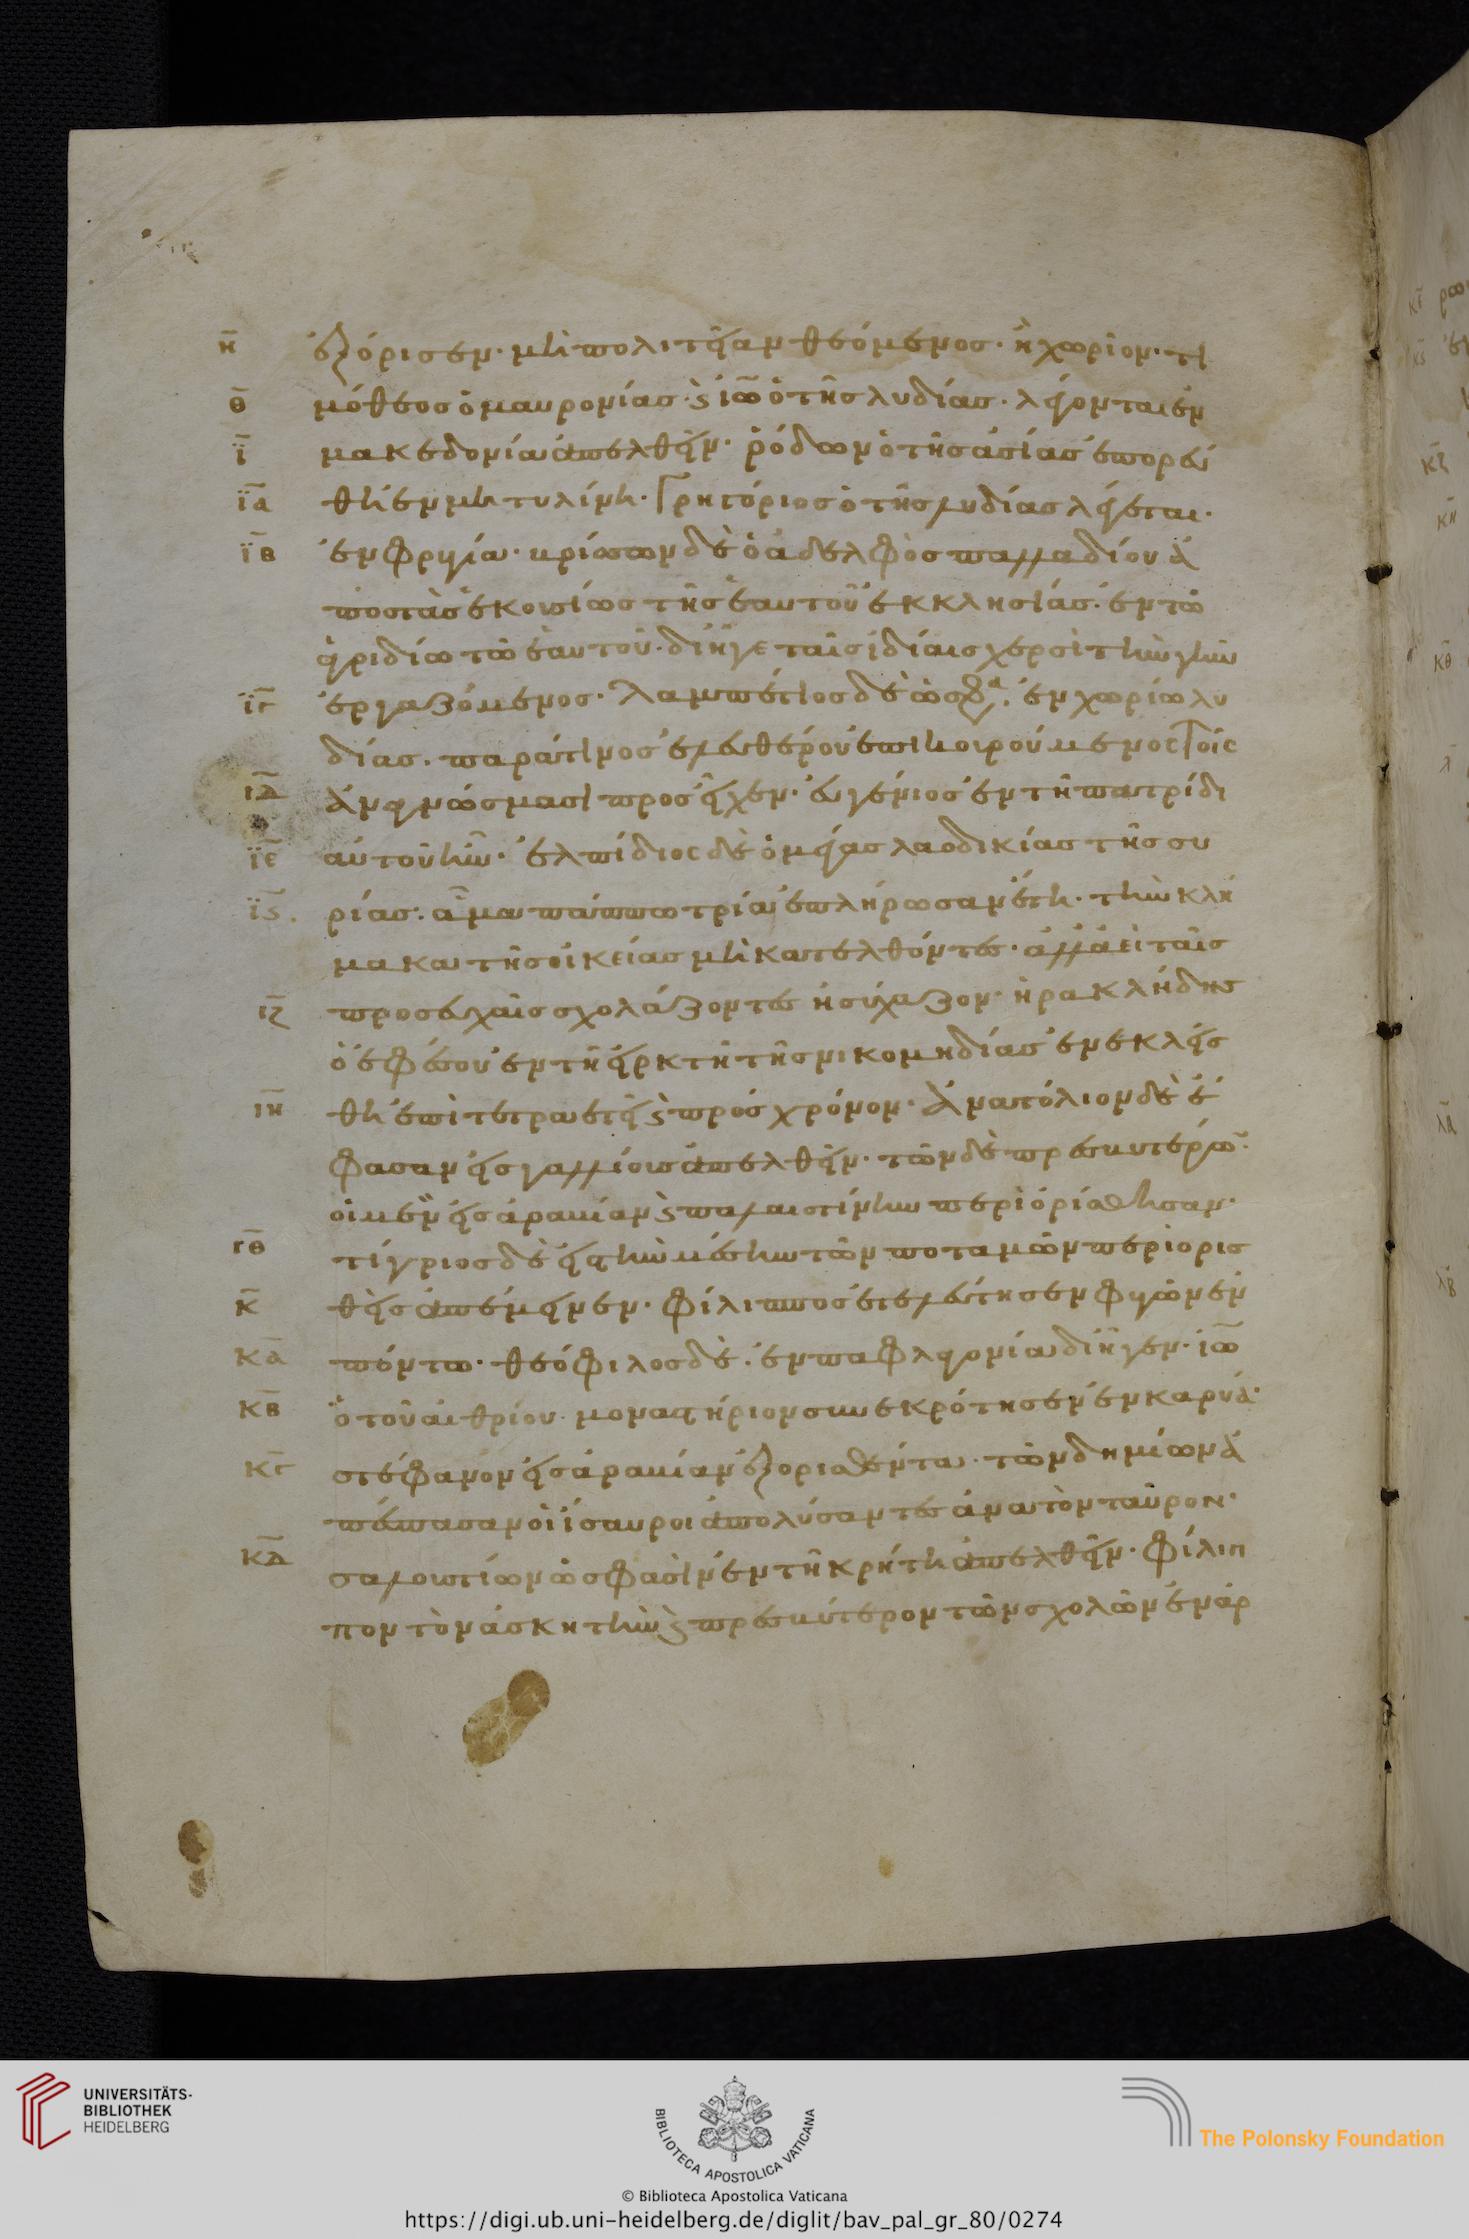 η̅ ἐξόρισεν· μὴ πολιτείαν θεόμενος· ἢ χωρίον· τι
θ̅ μόθεος ὁ μαυρονίας· ϗ ἰω̅ ὁ τῆς λυδίας· λέγονται ἐν
ϊ̅ μακεδονία ἀπελθεῖν· ῥόδων ὁ τῆς ἀσίας ἐπορεύ
ϊα̅ θη ἐν μητυλίνη· Γρηγόριος ὁ τῆς λυδίας λέγεται·
ϊβ̅ ἐν φρυγία· βρίσσων δὲ ὁ ἀδελφὸς παλλαδίου ἀ
ποστὰς ἑκουσίως τῆς ἑαυτοῦ ἐκκλησίας· ἐν τῶ
ἀγριδίω τῶ ἑαυτοῦ· διῆγε ταῖς ἰδίαις χερσὶ τὴν γῆν
ϊγ̅ ἐργαζόμενος· λαμπέτιος δὲ ὡς· ἐν χωρίω λυ
δίας· παρά τινος ἐλευθέρου ἐπιμοιρούμενος τοῖς
ιδ̅ ἀναγνώσμασι προσεῖχεν· εὐγένιος ἐν τῆ πατρίδι
ϊε̅ αὐτοῦ ἦν· ἐλπίδιος δὲ ὁ μέγας λαοδικίας τῆς συ
ϊϛ̅· ρίας· ἅμα πάππω τρία ἐπλήρωσαν ἔτη· τὴν κλή
μακα τῆς οἰκείας μὴ κατελθόντες· ἀλλ᾽ ἀεὶ ταῖς
ιζ̅ προσευχαῖς σχολάζοντες ἡσύχαζον· ἡρακλήδης
ὁ ἐφέσου ἐν τῆ εἱρκτῆ τῆς νικομηδίας ἐνεκλείσ
ιη̅ θη ἐπὶ τετραετεῖ ϗ πρὸς χρόνον· Ἀνατόλιον δὲ ἔ
φασαν εἰς γαλλίους ἀπελθεῖν· τῶν δὲ πρεσβυτέρων·
οἱ μὲν εἰς ἀραβίαν ϗ παλαιστίνην περιορίσθησαν·
ιθ̅ τίγριος δὲ εἰς τὴν μέσην τῶν ποταμῶν περιορισ
κ̅ θεὶς ἀπέμεινεν· φίλιππος ἐτελεύτησεν φυγὼν ἐν
κα̅ πόντω· θεόφιλος δὲ· ἐν παφλαγονία διῆγεν· ἰω̅
κβ̅ ὁ τοῦ αἰθρίου· μοναστήριον συνεκρότησεν ἐν καρύα·
κγ̅ στέφανον εἰς ἀραβίαν ἐξορισθέντα· τῶν δημίων ἀ
πέσπασαν οἱ ἴσαυροι ἀπολύσαντες ἀνὰ τὸν ταῦρον·
κδ̅ σαλουστίων ὡς φασὶν ἐν τῆ κρήτη ἀπελθεῖν· φίλιπ
πον τὸν ἀσκητὴν ϗ πρεσβύτερον τῶν σχολῶν ἐν ἀρ
UNIVERSITÄTS-
BIBLIOTHEK
HEIDELBERG
BIBLIOTECA APOSTOLICA VATICANA
The Polonsky Foundation
© Biblioteca Apostolica Vaticana
https://digi.ub.uni-heidelberg.de/diglit/bav_pal_gr_80/0274